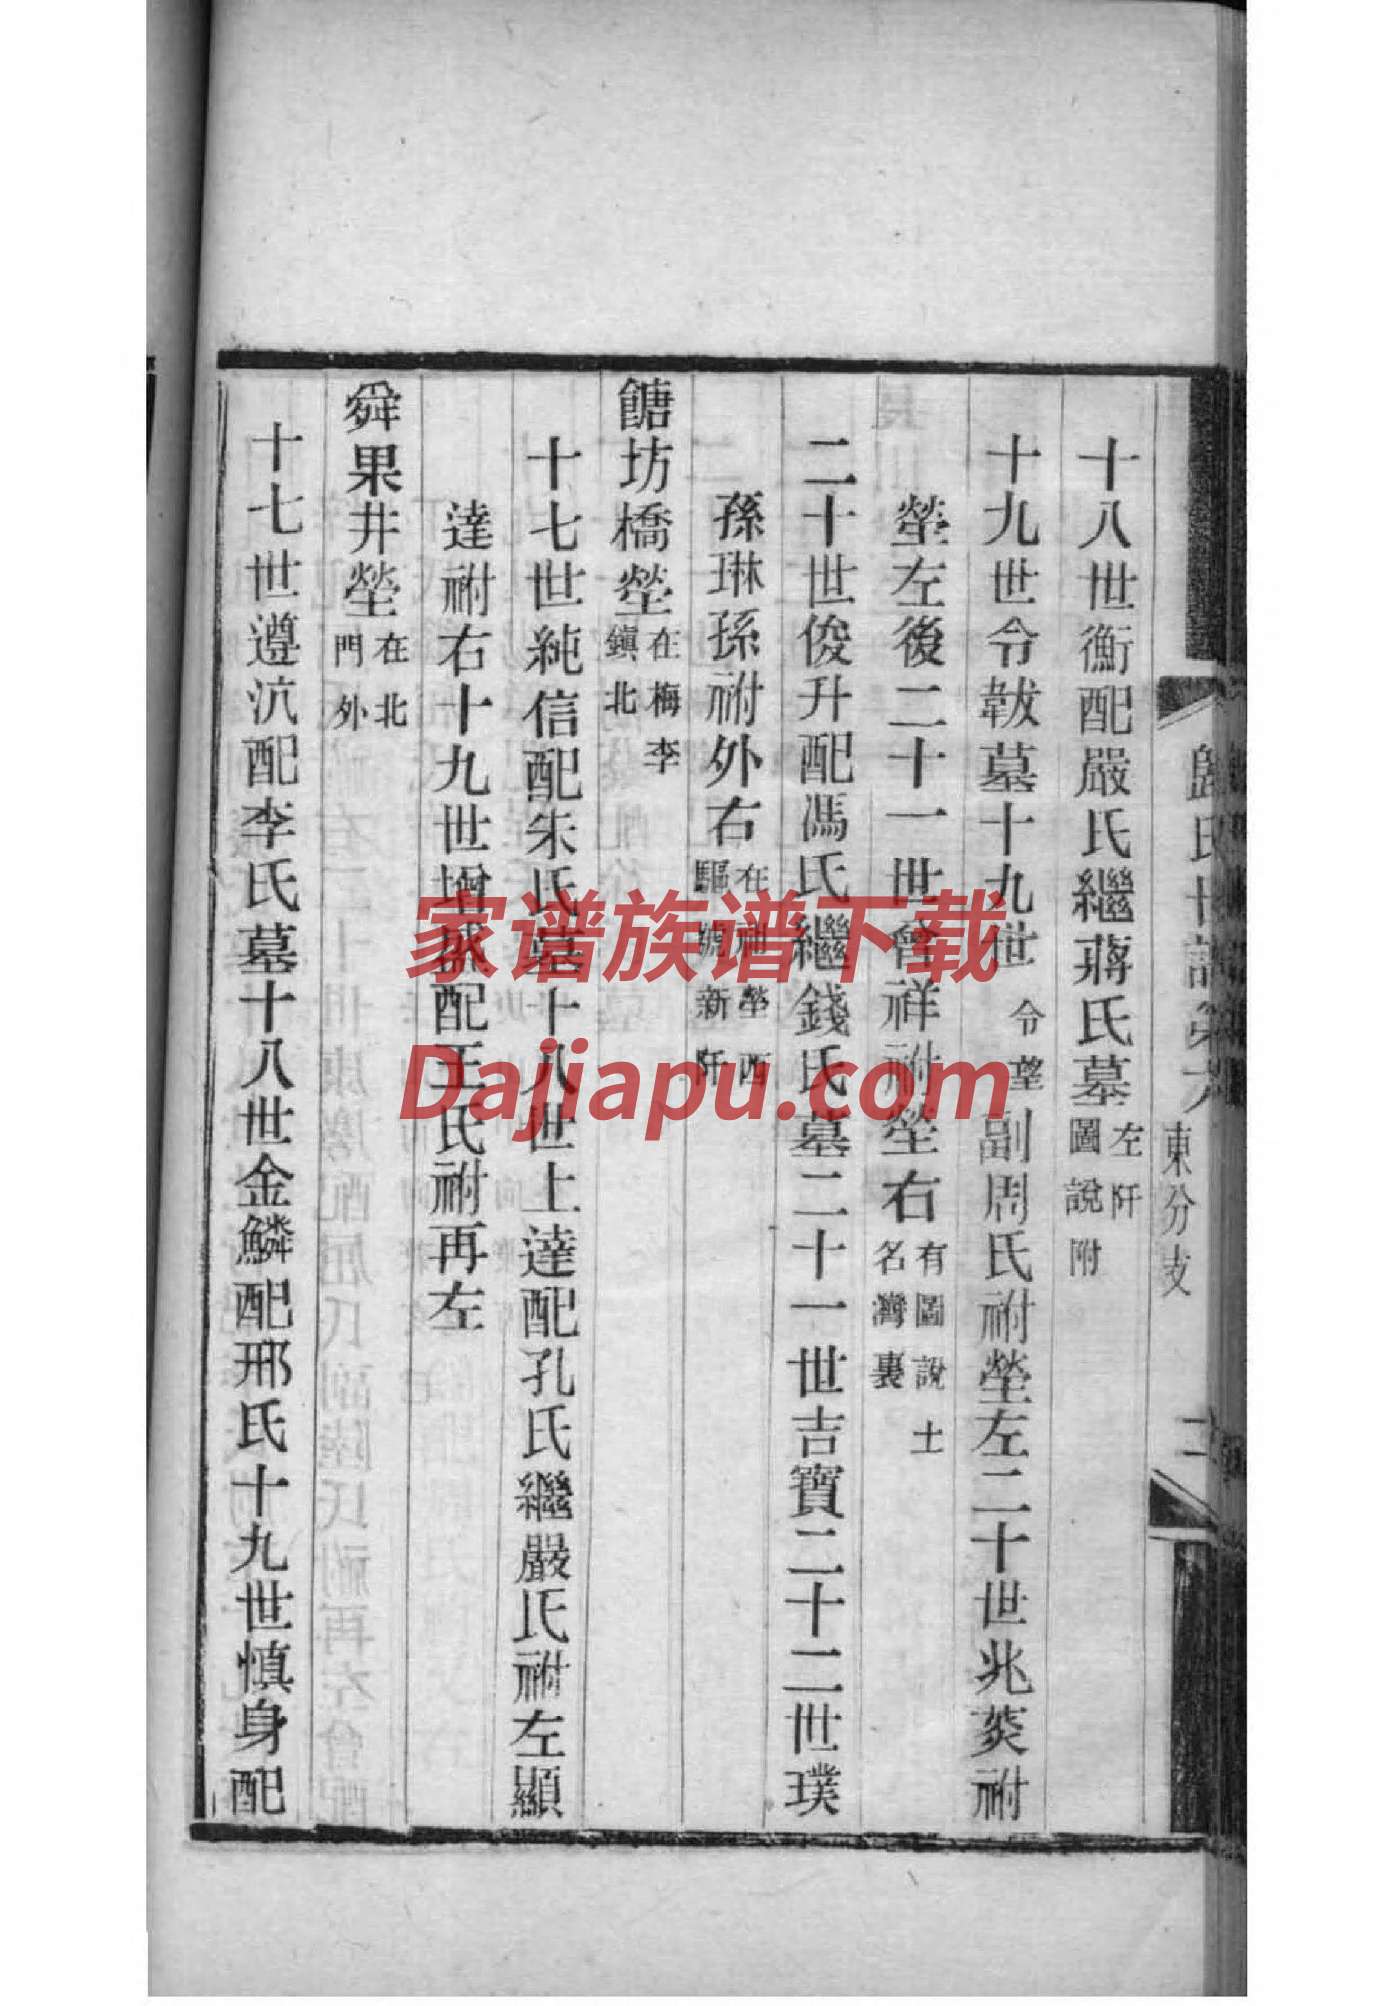 東分支
十八世衡配嚴氏繼蔣氏墓左阡圖說附
十九世令韍墓十九世令望副周氏祔塋左二十世兆葵祔
塋左後二十一世曾祥祔塋右有圖說士名灣裏
二十世俊升配馮氏繼錢氏墓二十一世吉寶二十二世璞
孫琳孫祔外右在祖塋西驅號新阡
餹坊橋塋在梅李鎮北
十七世純信配朱氏墓十八世上達配孔氏繼嚴氏祔左顯
達祔右十九世增 配王氏祔再左
舜果井塋在北門外
十七世遵沆配李氏墓十八世金鱗配邢氏十九世慎身配
家谱族谱下载
Dajiapu.com